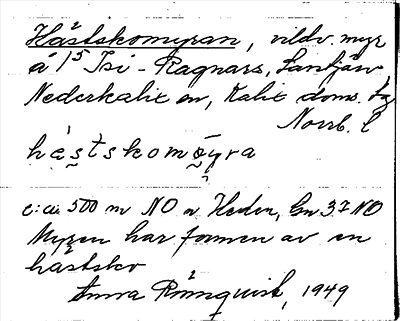 Hästskomyran, vildv. myr
å 1⁵ Isi-Ragnars, Lantjärv
Nederkalix sn, Kalix doms. tg
Norrb. l
hästskomyra
c:a 500 m NO o Heden, Gn 37 NO
Myren har formen av en
hästsko
Anna Rönnquist, 1949